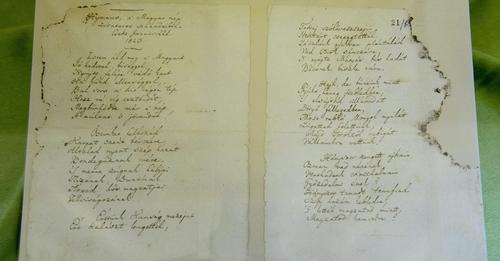 Hymnus, a' Magyar nép
zivataros századaiból
Cseke januar 22d
1823
Isten áldd meg a' Magyart
Jó kedvvel, bőséggel,
Nyújts feléje védő kart
Ha küzd ellenséggel;
Bal sors a' kit régen tép
Hozz rá víg esztendőt,
Megbünhödte már e' nép
A' multat 's jövendőt!
Őseinket felhozád
Kárpát szent bérczére
Általad nyert szép hazát
Bendegúznak vére.
'S merre zúgnak habjai
Tiszának, Dunának,
Árpád hős magzatjai
Felvirágozának.
Értünk Kunság mezejin
Ért kalászt lengettél,
Tokaj szőlővesszején
Nektárt csepegtettél.
Zászlónk gyakran plántálád
Vad török sánczára,
'S nyögte Mátyás bús hadát
Bécsnek büszke vára.
Hajh, de bűneink miatt
Gyúlt harag kebledben,
'S elsujtád villámidat
Dörgő fellegedben,
Most rabló Mongol nyilát
Zúgattad felettünk,
Majd töröktől rabigát
Vállainkra vettünk.
Hányszor zengett ajkain
Ozman vad népének
Vert hadunk csonthalmain
Győzedelmi ének!
Hányszor támadt tenfijad
Szép hazám kebledre,
'S lettél magzatod miatt
Magzatod hamvvedre?